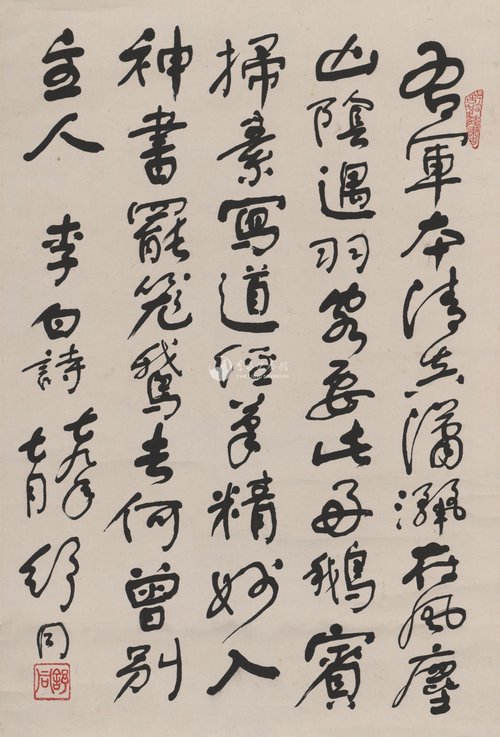 右軍本清真瀟灑在風塵
山陰遇羽客要此好鵝賓
掃素寫道經筆精妙入
神書罷籠鵝去何曾別
主人 李白詩
七九年
七月
舒同
舒同